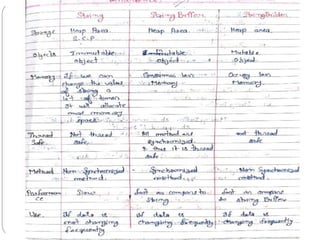 String String Buffer String Builder
Storage Heap Area Heap Area Heap area
S.C.P
Objects Immutable Mutable Mutable
Object Object Object
Memory If we can Consumes less Occupy less
change the value Memory Memory
of string a
lot of times
It will allocate
more memory
space
Thread Not thread All method are not thread
Safe safe synchronized safe
& thus it is thread
safe
Method Non Synchronized Synchronized Non Synchronized
method method method
Performan Slow fast as compare to fast as compare
ce String to String Buffer
Use If data is If data is If data is
not changing changing frequently changing frequently
frequently